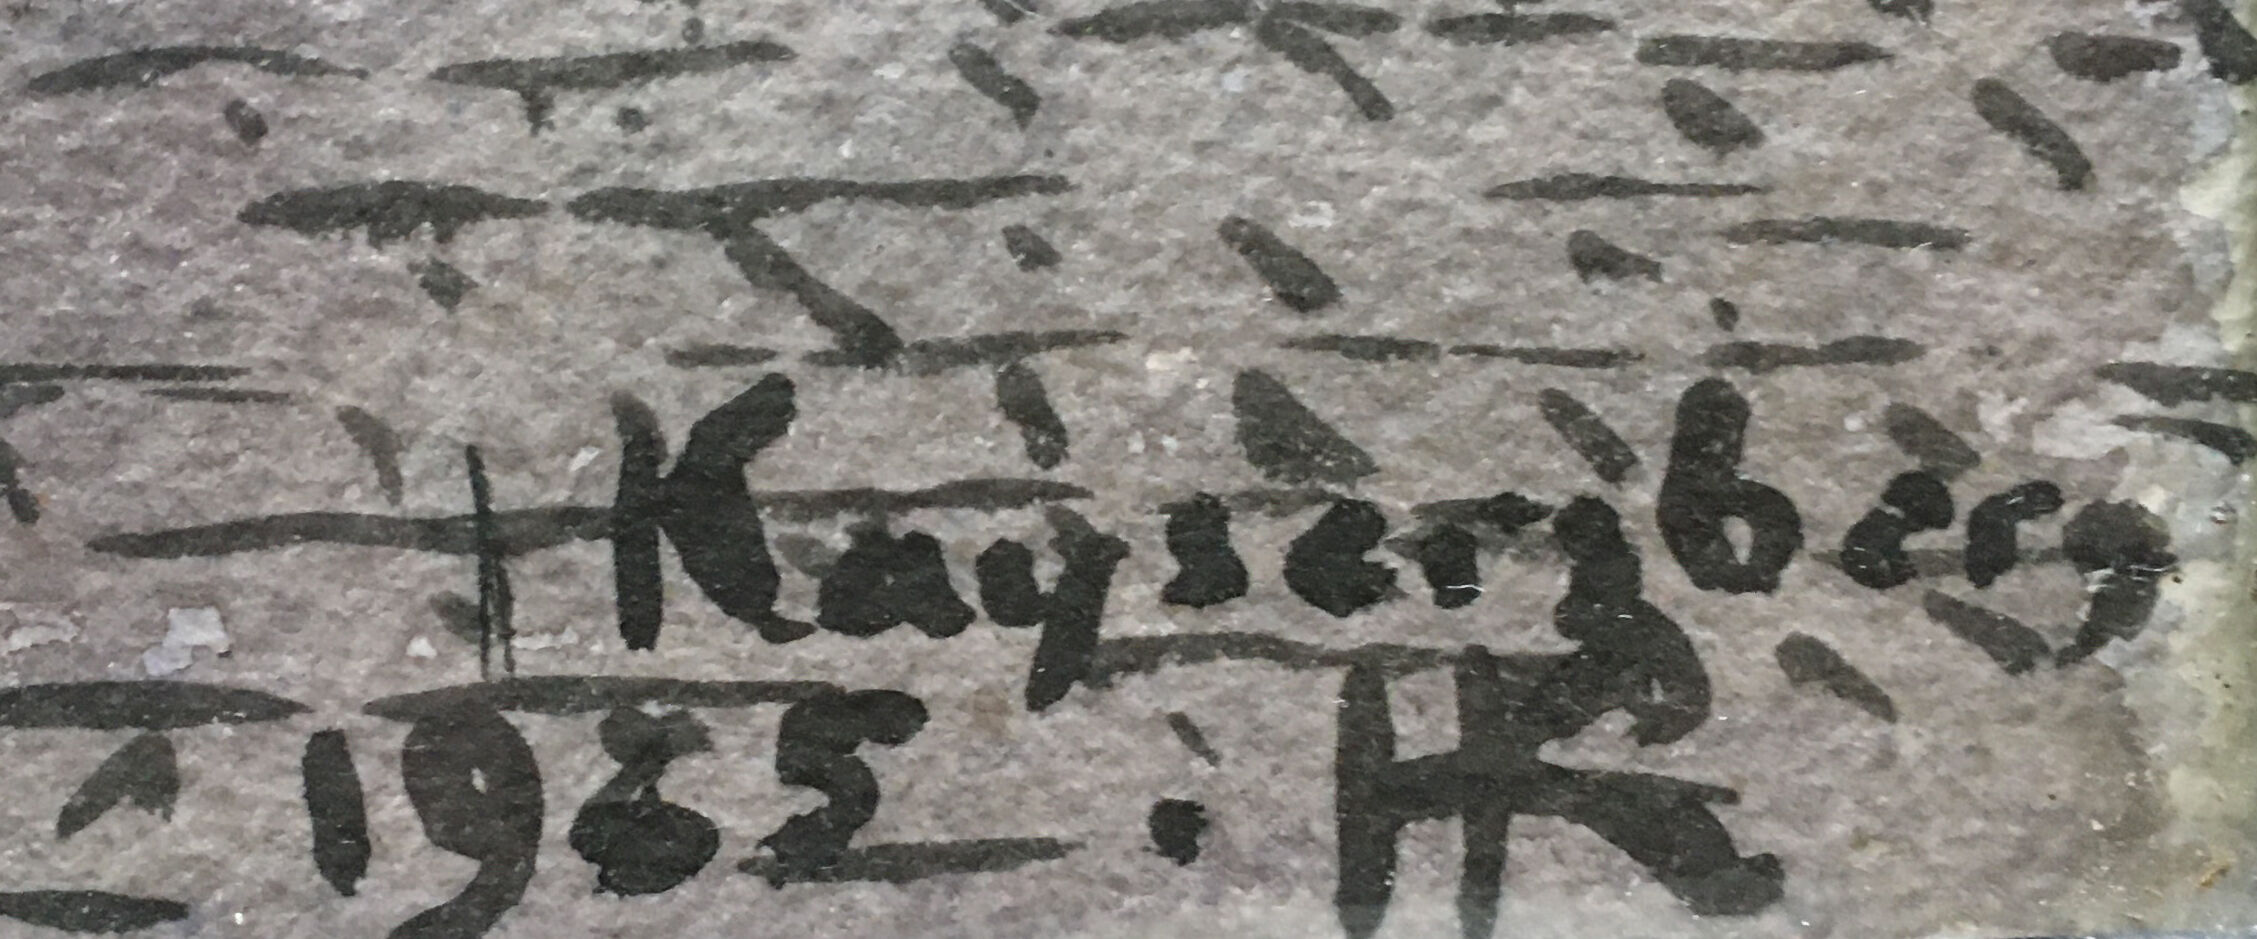 Kaysersberg
1985. HK